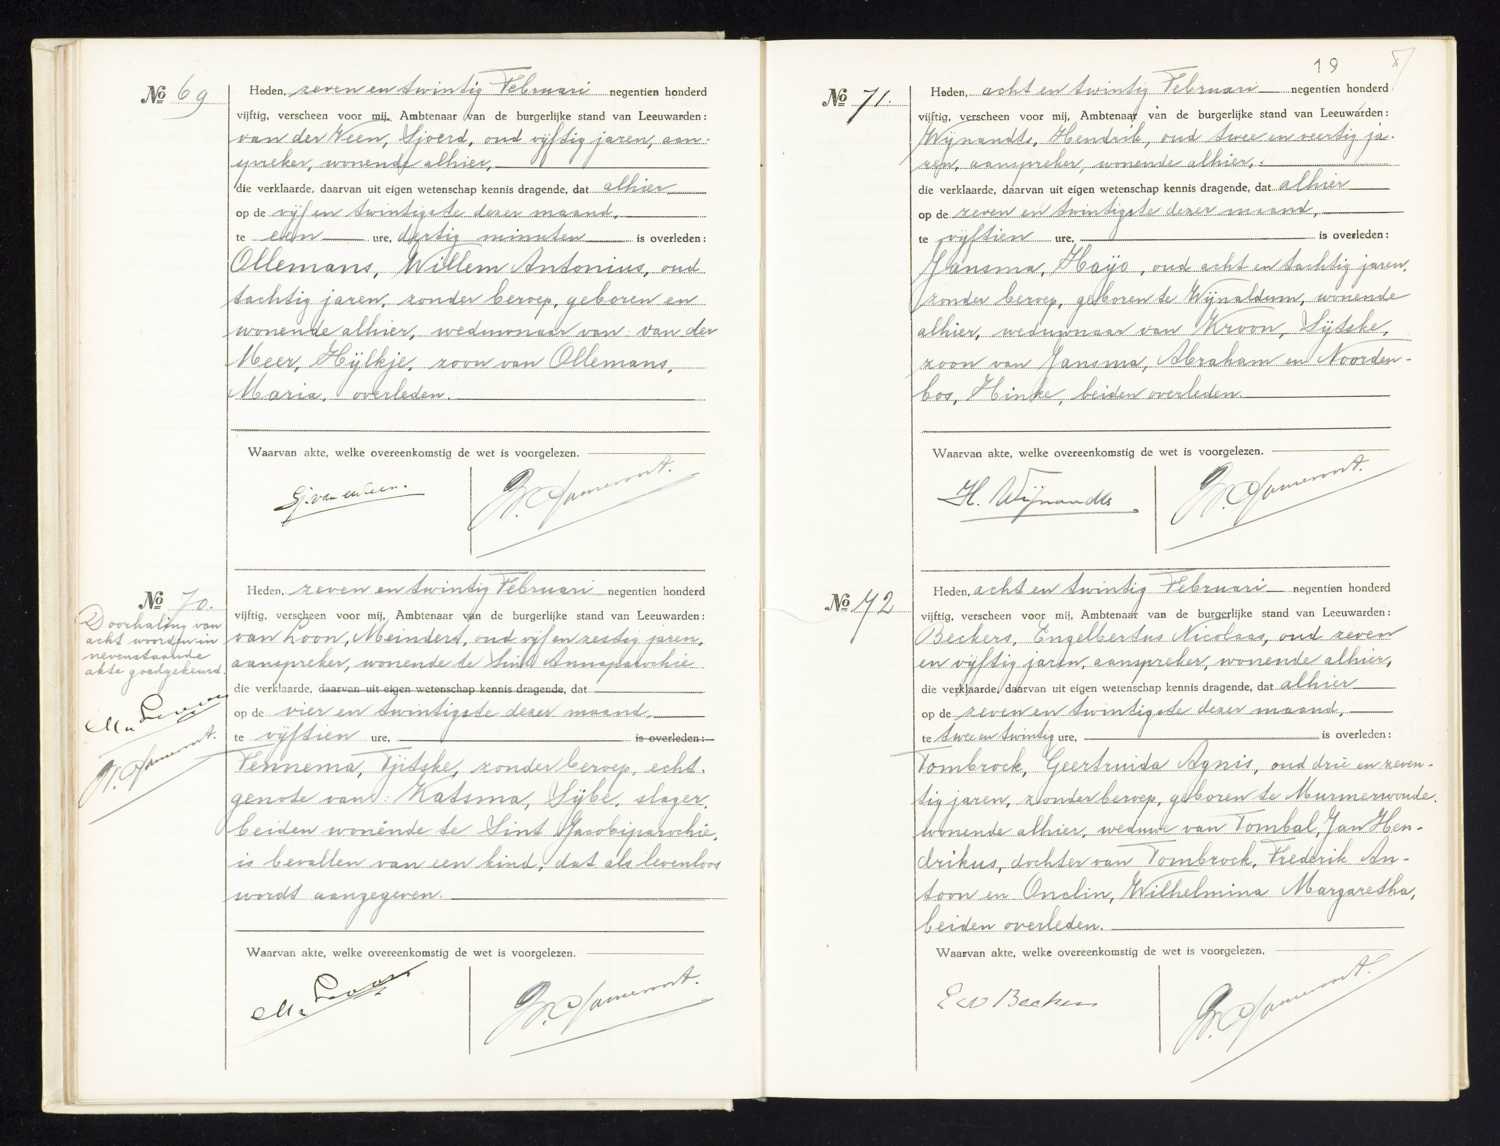 No 69
Heden, zeven en twintig Februari negentien honderd
vijftig, verscheen voor mij, Ambtenaar van de burgerlijke stand van Leeuwarden:
van der Veen, Sjoerd, oud vijftig jaren, aan-
spreker, wonende alhier,
die verklaarde, daarvan uit eigen wetenschap kennis dragende, dat alhier
op de vijf en twintigste dezer maand,
te een ure, dertig minuten is overleden:
Ollemans, Willem Antonius, oud
tachtig jaren, zonder beroep, geboren en
wonende alhier, weduwnaar van van der
Meer, Hijlkje, zoon van Ollemans,
Maria, overleden.
Waarvan akte, welke overeenkomstig de wet is voorgelezen.
Sj. van der Veen.
No 70.
Doorhaling van
acht woorden in
nevenstaande
akte goedgekeurd.
Heden, zeven en twintig Februari negentien honderd
vijftig, verscheen voor mij, Ambtenaar van de burgerlijke stand van Leeuwarden:
van Loon, Meindert, oud vijf en zestig jaren,
aanspreker, wonende te Sint Annaparochie
die verklaarde, daarvan uit eigen wetenschap kennis dragende, dat
op de vier en twintigste dezer maand,
te vijftien ure, is overleden:
Tennema, Tjitske, zonder beroep, echt-
genote van: Katsma, Sijbe, slager,
beiden wonende te Sint Jacobiparochie,
is bevallen van een kind, dat als levenloos
wordt aangegeven.
Waarvan akte, welke overeenkomstig de wet is voorgelezen.
M. v. Loon
19
No 71.
Heden, acht en twintig Februari negentien honderd
vijftig, verscheen voor mij, Ambtenaar van de burgerlijke stand van Leeuwarden:
Wijnandts, Hendrik, oud twee en veertig ja-
ren, aanspreker, wonende alhier,
die verklaarde, daarvan uit eigen wetenschap kennis dragende, dat alhier
op de zeven en twintigste dezer maand,
te vijftien ure, is overleden:
Jansma, Haijo, oud acht en tachtig jaren,
zonder beroep, geboren te Wijnaldum, wonende
alhier, weduwnaar van Kroon, Sijtske,
zoon van Jansma, Abraham en Noorden-
bos, Hinke, beiden overleden.
Waarvan akte, welke overeenkomstig de wet is voorgelezen.
H. Wijnandts
No 72
Heden, acht en twintig Februari negentien honderd
vijftig, verscheen voor mij, Ambtenaar van de burgerlijke stand van Leeuwarden:
Beckers, Engelbertus Nicolaas, oud zeven
en vijftig jaren, aanspreker, wonende alhier,
die verklaarde, daarvan uit eigen wetenschap kennis dragende, dat alhier
op de zeven en twintigste dezer maand,
te twee en twintig ure, is overleden:
Tombrock, Geertruida Agnis, oud drie en zeven-
tig jaren, zonder beroep, geboren te Murmerwoude,
wonende alhier, weduwe van Tombal, Jan Hen-
drikus, dochter van Tombrock, Frederik An-
toon en Onclin, Wilhelmina Margaretha,
beiden overleden.
Waarvan akte, welke overeenkomstig de wet is voorgelezen.
E N Beckers